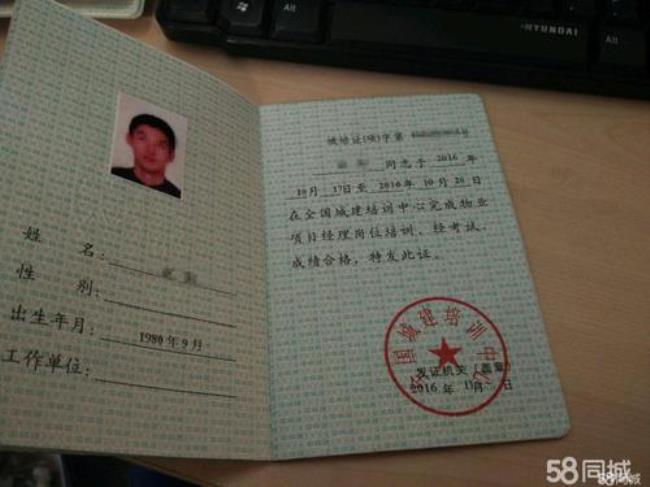 Alt
Alt
HYUNDAI
姓 名:
性 别:
出生年月: 1980年9月
工作单位:
城培证(项)字第
同志于 2016 年
10月 17日至 2016年 10月 20日
在全国城建培训中心完成物业
项目经理岗位培训、经考试,
成绩合格,特发此证。
全国城建培训中心
发证机关(盖章)
2016 年 11月 日
58同城
58同城